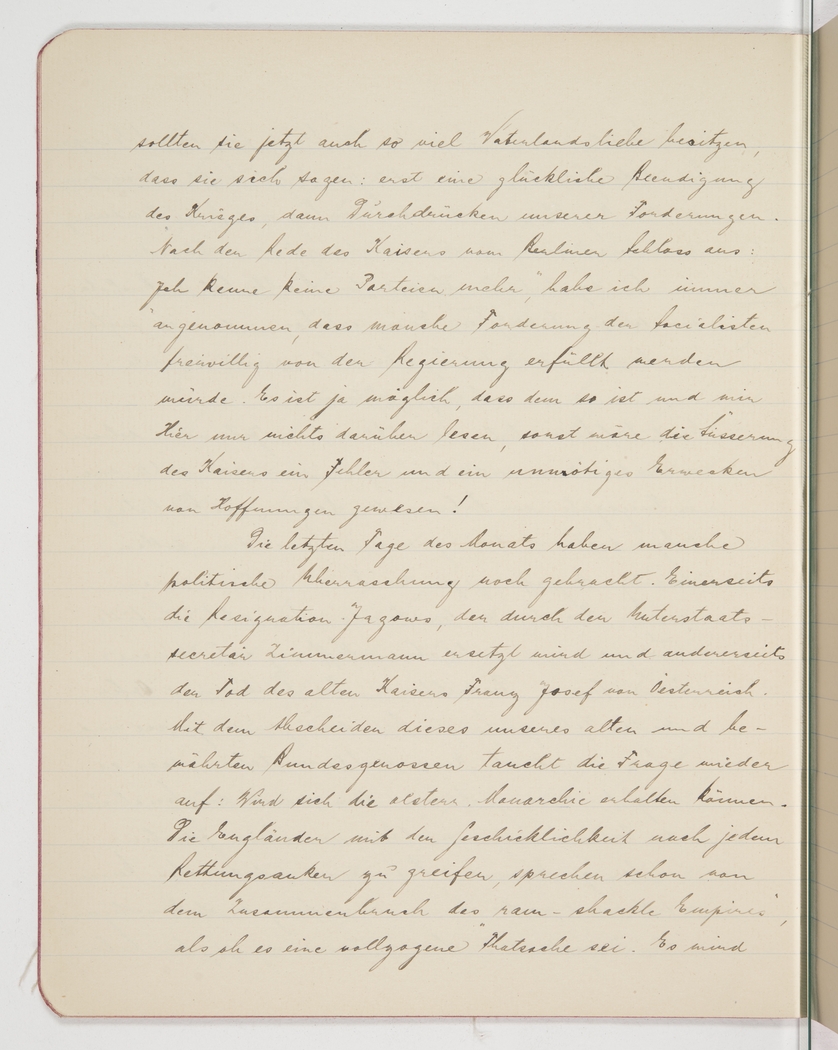 sollten sie jetzt auch so viel Vaterlandsliebe besitzen,
dass sie sich sagen: erst eine glückliche Beendigung
des Krieges, dann Durchdrücken unserer Forderungen.
Nach der Rede des Kaisers vom Berliner Schloss aus:
"Ich kenne keine Parteien mehr", habe ich immer
angenommen, dass manche Forderung der Socialisten
freiwillig von der Regierung erfüllt werden
würde. Es ist ja möglich, dass dem so ist und wir
hier nur nichts darüber lesen, sonst wäre die Äusserung
des Kaisers ein Fehler und ein unnötiges Erwecken
von Hoffnungen gewesen!
Die letzten Tage des Monats haben manche
politische Überraschung noch gebracht. Einerseits
die Resignation Jagows, der durch den Unterstaats-
secretär Zimmermann ersetzt wird und andererseits
den Tod des alten Kaisers Franz Josef von Oesterreich.
Mit dem Abscheiden dieses unseres alten und be-
währten Bundesgenossen taucht die Frage wieder
auf: Wird sich die oesterr. Monarchie erhalten können.
Die Engländer mit der Geschicklichkeit nach jedem
Rettungsanker zu greifen, sprechen schon von
dem Zusammenbruch des "ram-shackle Empires",
als ob es eine vollzogene Thatsache sei. Es wird